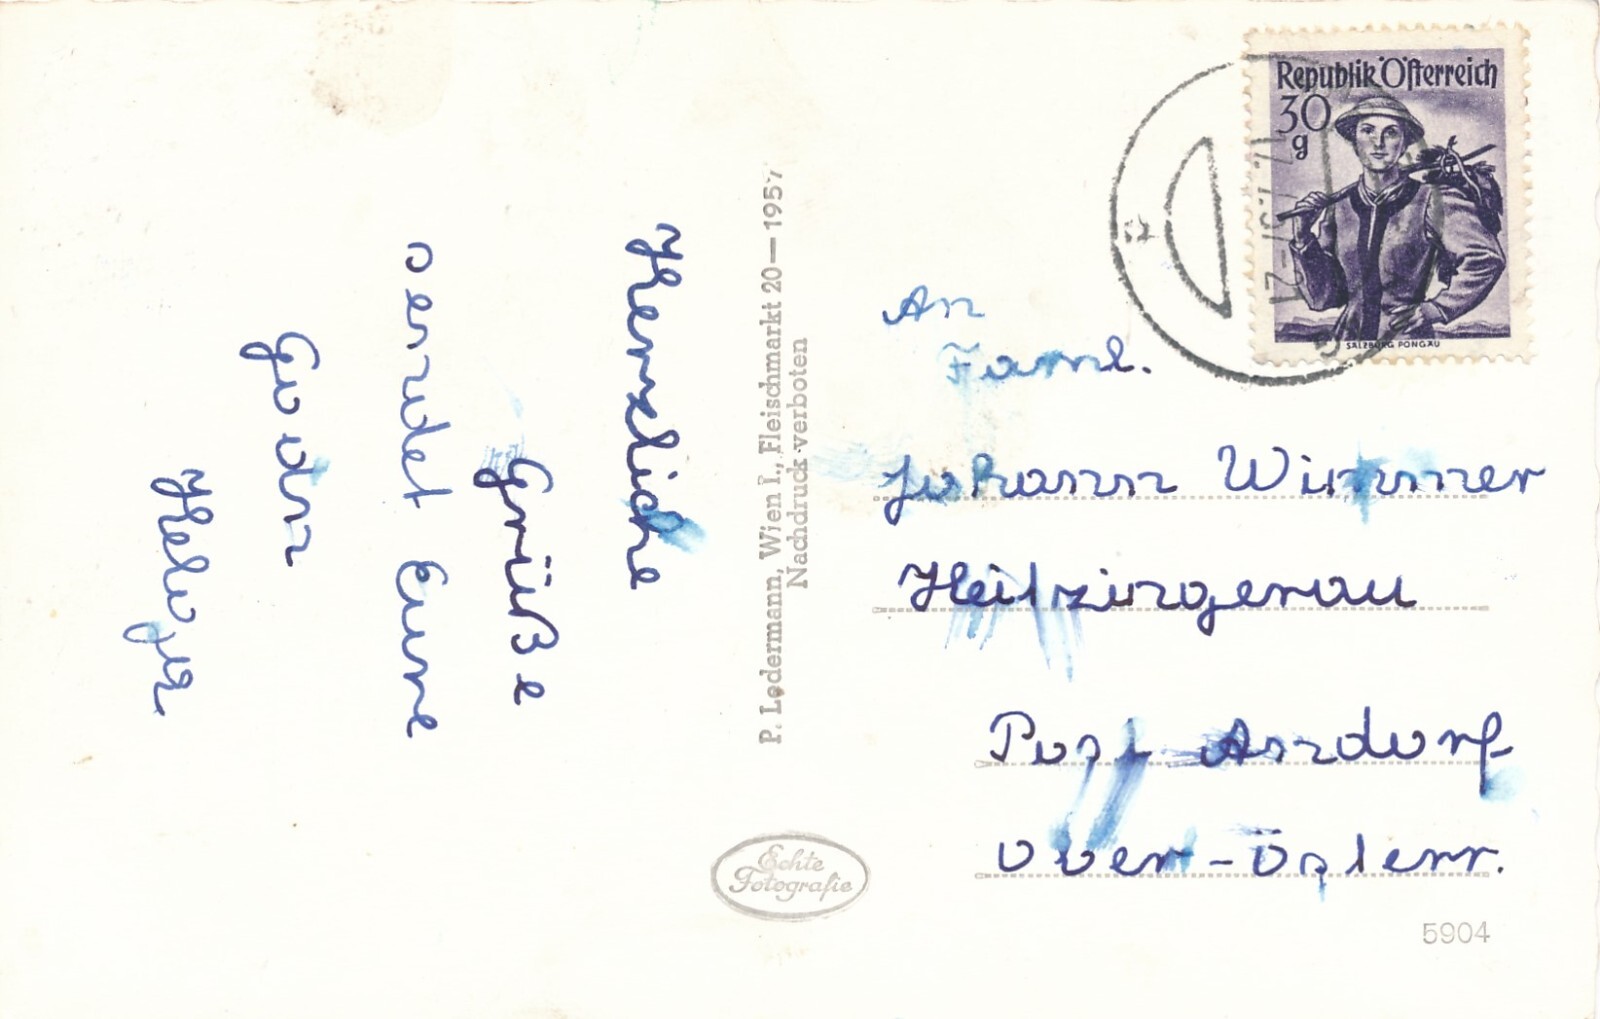 Herzliche
Grüße
sendet Eure
Godn
P. Ledermann, Wien I., Fleischmarkt 20—1957
Nachdruck verboten
Echte
Fotografie
Republik Österreich
30
g
SALZBURG PONGAU
An
Faml.
Johann Wimmer
Heitzingerau
Post Arzdorf
Ober-Österr.
5904